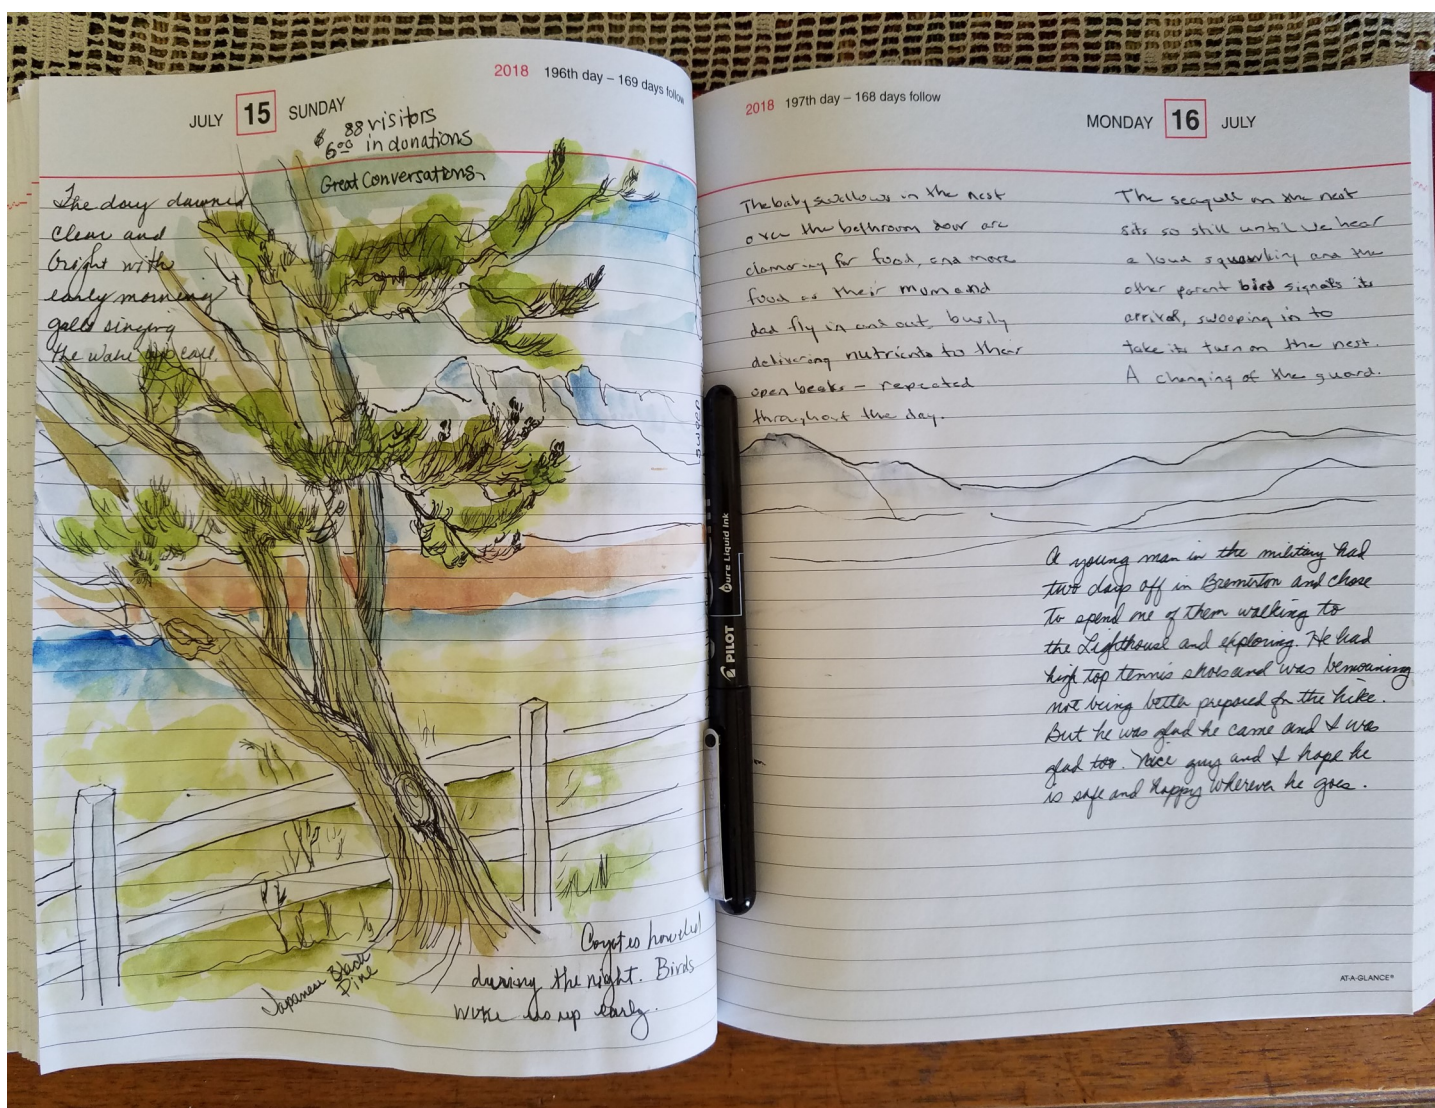 2018 196th day – 169 days follow
JULY 15 SUNDAY
88 visitors
$6.00 in donations
Great Conversations,
The day dawned
clear and
bright with
early morning
gulls singing
the wake up call.
Japanese Black
Pine
Coyotes howled
during the night. Birds
woke us up early.
PILOT
Pure Liquid Ink
2018 197th day – 168 days follow
MONDAY 16 JULY
The baby swallows in the nest
over the bathroom door are
clamoring for food, and more
food as their mum and
dad fly in and out, busily
delivering nutrients to their
open beaks – repeated
throughout the day.
The seagull on the nest
sits so still until we hear
a loud squawking and the
other parent bird signals its
arrival, swooping in to
take its turn on the nest.
A changing of the guard.
A young man in the military had
two days off in Bremerton and chose
to spend one of them walking to
the Lighthouse and exploring. He had
high top tennis shoes and was bemoaning
not being better prepared for the hike.
But he was glad he came and I was
glad too. Nice guy and I hope he
is safe and happy wherever he goes.
AT-A-GLANCE®